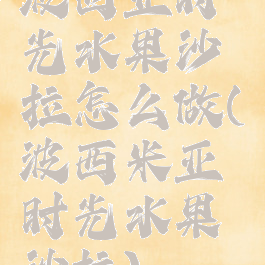 波西亚时
光水果沙
拉怎么做(
波西米亚
时光水果
沙拉)